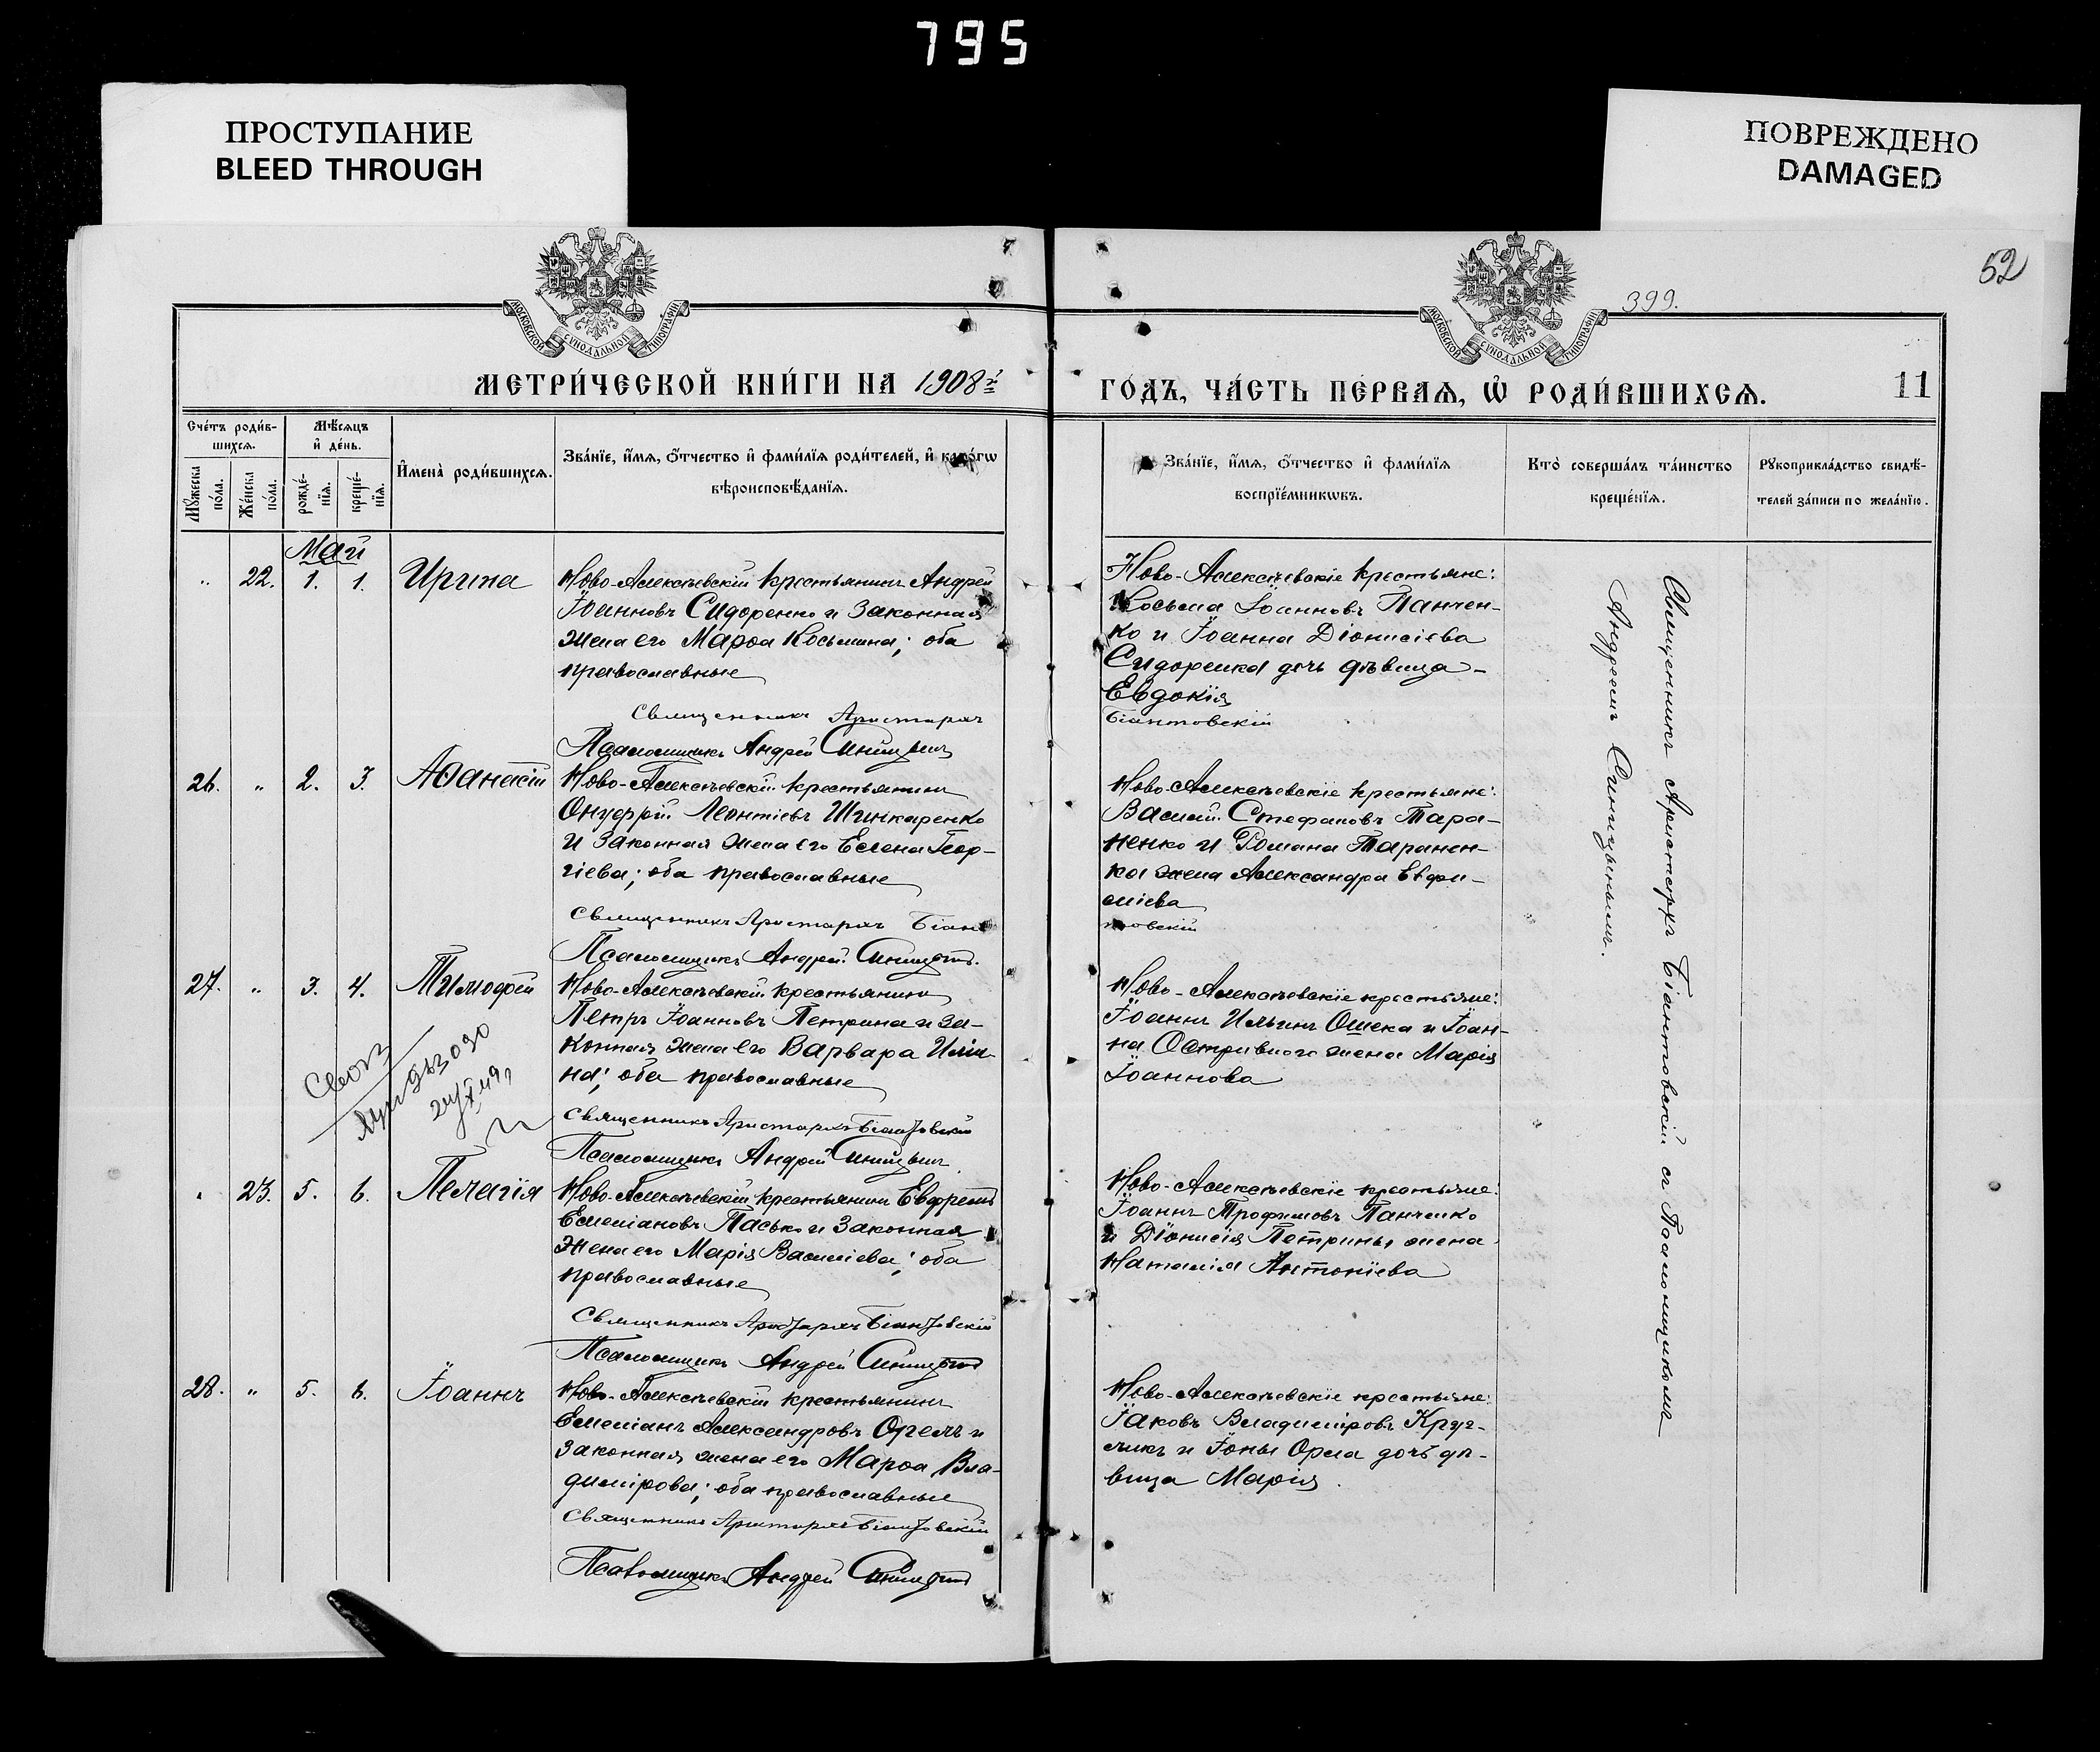 795
ПРОСТУПАНИЕ
BLEED THROUGH
ПОВРЕЖДЕНО
DAMAGED
52
399.
МОСКОВСКОЙ СѴНОДАЛЬНОЙ ТИПОГРАФІИ
МОСКОВСКОЙ СѴНОДАЛЬНОЙ ТИПОГРАФІИ
МЕТРИ́ЧЕСКОЙ КНИ́ГИ НА 1908й
ГО́ДЪ, ЧА́СТЬ ПЕ́РВАѦ, Ѡ҆ РОДИ́ВШИХСѦ.
11
Сче́тъ роди́в-
шихсѧ.
Мꙋ́жеска
по́ла.
Же́нска
по́ла.
Мѣ́сѧцъ
и҆ де́нь.
рожде́-
нїѧ.
креще́-
нїѧ.
И҆мена̀ роди́вшихсѧ.
Зва́нїе, и҆́мѧ, ѻ҆́тчество и҆ фами́лїѧ роди́телей, и҆ како́гѡ
вѣроисповѣ́данїѧ.
Зва́нїе, и҆́мѧ, ѻ҆́тчество и҆ фами́лїѧ
воспрїе́мникѡвъ.
Кто̀ соверша́лъ та́инство
креще́нїѧ.
Рꙋкоприкла́дство свидѣ́-
телей за́писи по жела́нїю.
Май
" 22. 1. 1. Ирина
Ново-Алексѣевскій крестьянинъ Андрей
Іоанновъ Сидоренко и законная
жена его Марѳа Косьмина; оба
православные
Священникъ Аристархъ
Псаломщикъ Андрей Синицынъ
Ново-Алексѣевскіе крестьяне:
Косьма Іоанновъ Панчен-
ко и Іоанна Діонисіева
Сидоренка дочь дѣвица
Евдокія
Біантовскій
26. " 2. 3. Аѳанасій
Ново-Алексѣевскій крестьянинъ
Онуфрій Леонтіевъ Шинкаренко
и законная жена его Елена Геор-
гіева; оба православные
Священникъ Аристархъ Біан
Псаломщикъ Андрей Синицынъ.
Ново-Алексѣевскіе крестьяне:
Василій Стефановъ Тара-
ненко и Романа Таранен-
ка жена Александра Евфи-
міева
товскій
27. " 3. 4. Тимофей
Ново-Алексѣевскій крестьянинъ
Петръ Іоанновъ Петрина и за-
конная жена его Варвара Ильи-
на; оба православные
Священникъ Аристархъ Біантовскій
Псаломщикъ Андрей Синицынъ
Ново-Алексѣевскіе крестьяне:
Іоаннъ Ильинъ Ошека и Іоан-
на Остривного жена Марія
Іоаннова
" 23. 5. 6. Пелагія
Ново-Алексѣевскій крестьянинъ Евфремъ
Емеліановъ Пасько и законная
жена его Марія Василіева; оба
православные
Священникъ Аристархъ Біантовскій
Псаломщикъ Андрей Синицынъ
Ново-Алексѣевскіе крестьяне:
Іоаннъ Трофимовъ Панченко
и Діонисія Петрины жена
Наталія Антоніева
28. " 5. 6. Іоаннъ
Ново-Алексѣевскій крестьянинъ
Емеліанъ Александровъ Орелъ и
законная жена его Марѳа Вла-
димірова; оба православные
Священникъ Аристархъ Біантовскій
Псаломщикъ Андрей Синицынъ
Ново-Алексѣевскіе крестьяне:
Іаковъ Владиміровъ Круг-
ликъ и Іоны Орла дочь дѣ-
вица Марія.
Священникъ Аристархъ Біантовскій съ Псаломщикомъ
Андреемъ Синицынымъ.